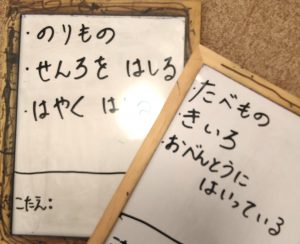 ・のりもの
・せんろを はしる
・はやく は
こたえ:
・たべもの
・きいろ
・おべんとうに
はいっている